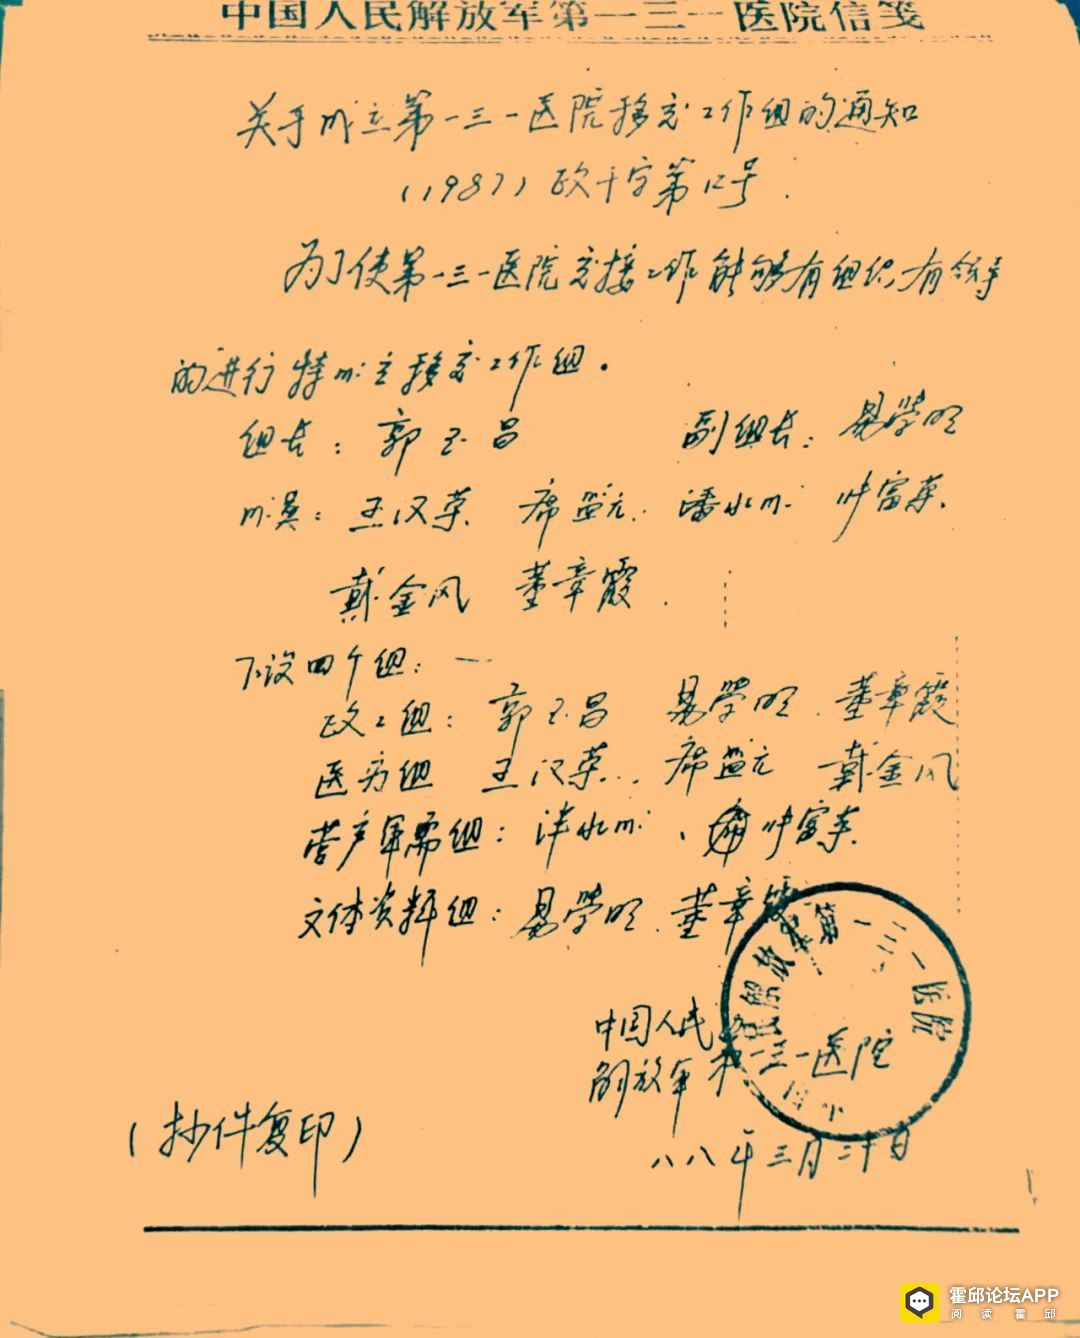 中国人民解放军第一三一医院信笺
关于成立第一三一医院移交工作组的通知
(1987)政干字第12号.
为了使第一三一医院交接工作能够有组织,有领导
的进行特成立移交工作组。
组长:郭玉昌 副组长:易学明
成员:王汉荣 席益元 潘水成 叶富荣
戴金风 董章霞
下设四个组:一
政工组:郭玉昌 易学明 董章霞
医务组 王汉荣 席益元 戴金风
营产军需组:水成、叶富荣
文体资料组:易学明 董章霞
中国人民
解放军第一三一医院
八八年三月二十日
中国人民解放军第一三一医院
(抄件复印)
霍邱论坛APP
阅读霍邱